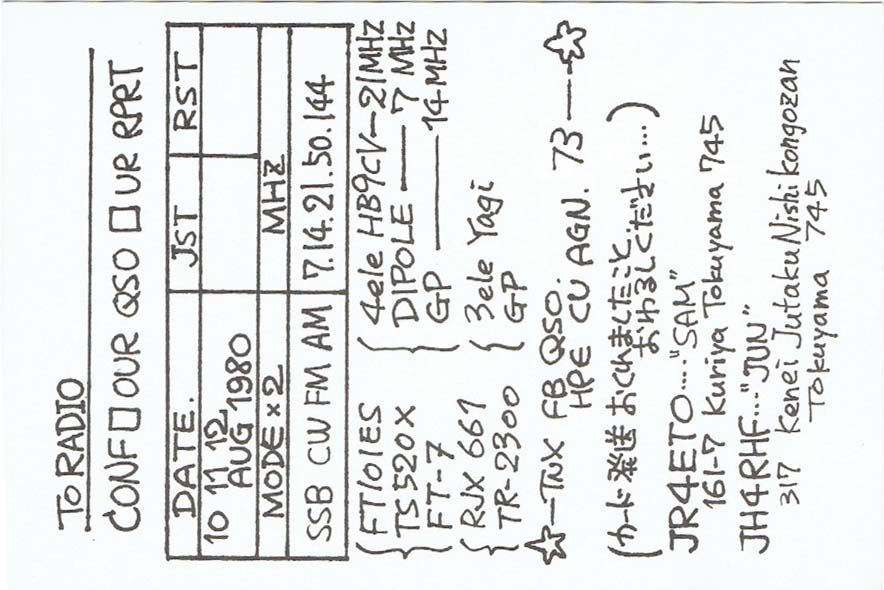 To RADIO
CONF □ OUR QSO □ UR RPRT
DATE. JST RST
10 11 12
AUG 1980
MODE×2 MHz
SSB CW FM AM 7.14.21.50.144
FT101ES 4ele HB9CV—21MHz
TS520X DIPOLE —— 7 MHz
FT-7 GP ——— 14MHz
RJX 661 3ele Yagi
TR-2300 GP
☆—TNX FB QSO.
HPE CU AGN. 73 ——☆
(カード発送おくれましたこと
おわるしください…)
JR4ETO...."SAM"
161-7 Kuriya Tokuyama 745
JH4RHF..."JUN"
317 Kenei Jutaku Nishikongozan
Tokuyama 745